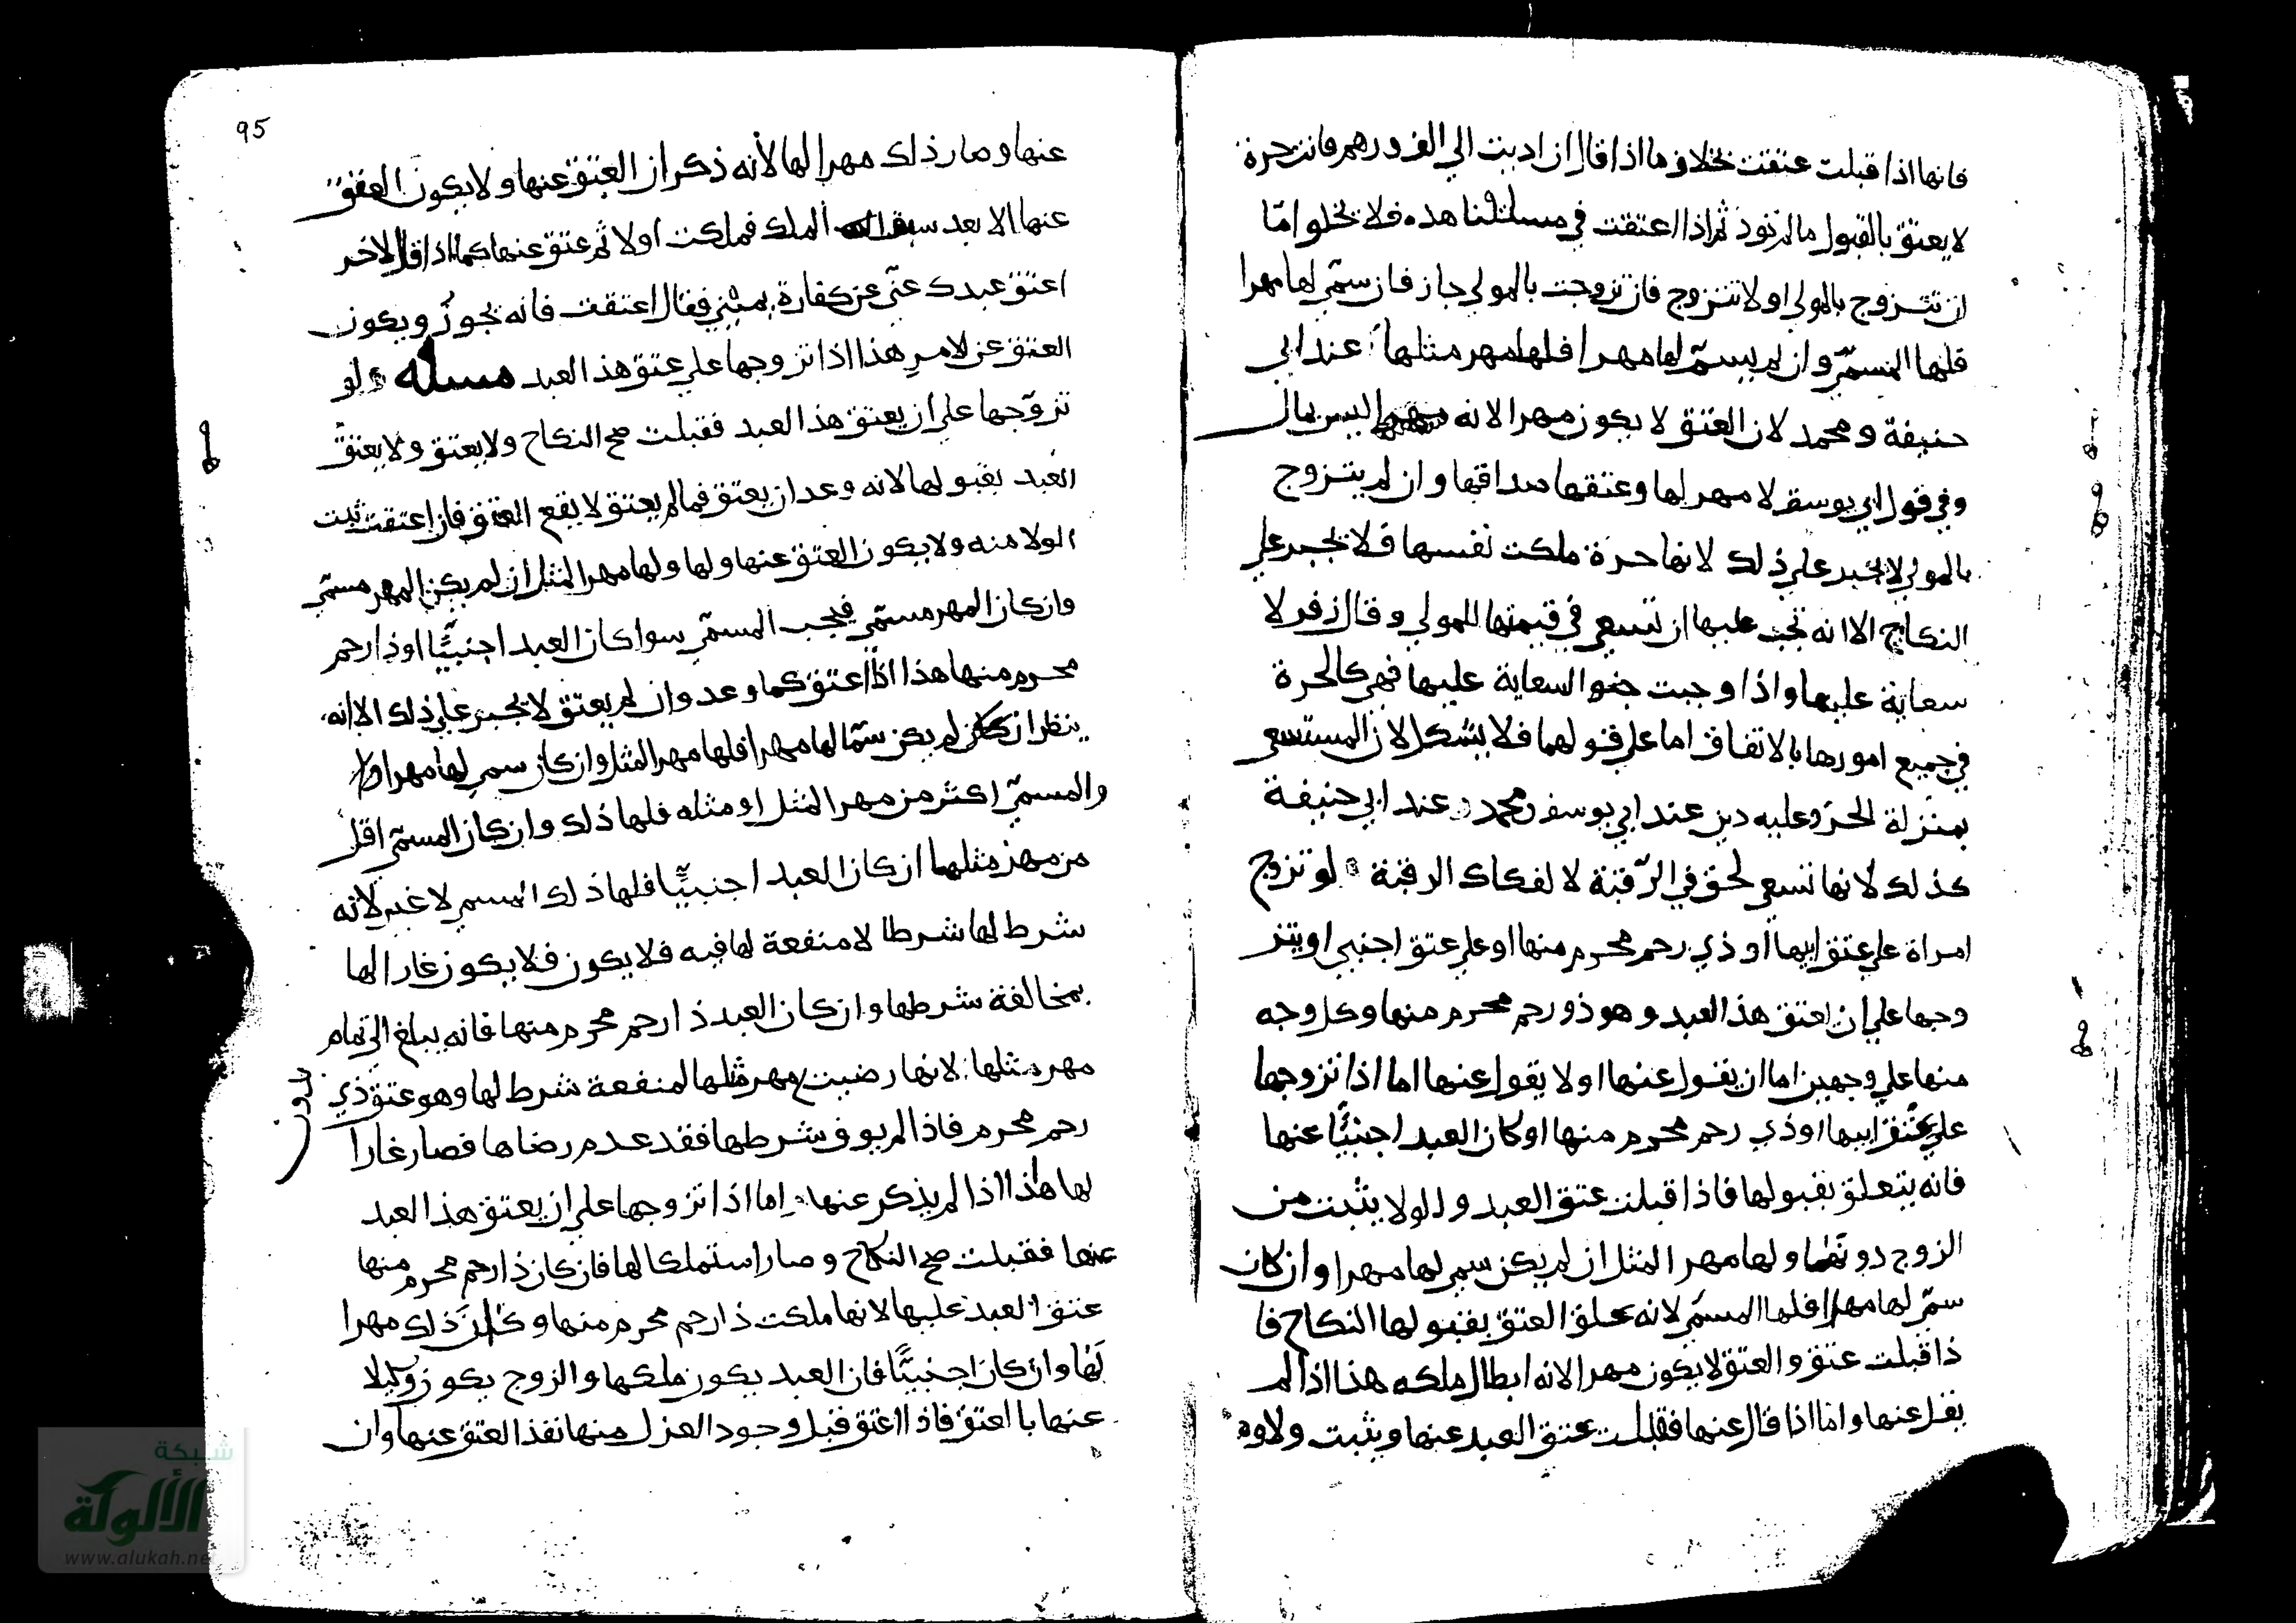 فانها اذا قبلت عتقت بخلاف ما اذا قال ان اديت الي الف درهم فانت حرة
لا يعتق بالقبول ما لم تود ثم اذا اعتقت في مسئلتنا هذه فلا يخلوا امّا
ان تتزوج بالمولى او لا تتزوج فان تزوجت بالمولى جاز فان سمّى لها مهرا
فلها المسمّى وان لم يسمّ لها مهرا فلها مهر مثلها عند ابي
حنيفة و محمد لان العتق لا يكون مهرا لانه ليس بمال
وفي قول ابي يوسف لا مهر لها وعتقها صداقها وان لم يتزوج
بالمولى لا يجبر على ذلك لانها حرة ملكت نفسها فلا يجبر على
النكاح الا انه تجب عليها ان تسعى في قيمتها للمولى و قال زفر لا
سعاية عليها واذا وجبت السعاية عليها فهي كالحرة
في جميع امورها بالاتفاق اما على قولهما فلا يشكل لان المستسعى
بمنزلة الحرّ وعليه دين عند ابي يوسف ومحمد وعند ابي حنيفة
كذلك لانها تسعى لحق في الرّقبة لا لفكاك الرقبة لو تزوج
امراة على عتق ابيها او ذي رحم محرم منها او على عتق اجنبي او يتز
وجها على ان يعتق هذ العبد و هو ذو رحم محرم منها وكل وجه
منها على وجهين اما ان يقول عنها او لا يقول عنها اما اذا تزوجها
على عتق ابيها او ذي رحم محرم منها او كان العبد اجنبيًّا عنها
فانه يتعلق بقبولها فاذا قبلت عتق العبد والولا يثبت من
الزوج دونها ولها مهر المثل ان لم يكن سمى لها مهرا وان كان
سمّى لها مهرا فلها المسمّى لانه علق العتق بقبولها النكاح فا
ذا قبلت عتق و العتق لا يكون مهرا لانه ابطال ملكه هذا اذا لم
يقل عنها وامّا اذا قال عنها فقبلت عتق العبد عنها ويثبت ولاوه
95
عنها وصار ذلك مهرا لها لأنه ذكر ان العتق عنها ولا يكون العتق
عنها الا بعد الملك فملكت اولا ثم عتق عنها كما اذا قال لاخر
اعتق عبدك عنّي عن كفارة يميني فقال اعتقت فانه يجوز ويكون
العتق عن الامر هذا اذا تزوجها على عتق هذ العبد مسئلة ولو
تزوّجها على ان يعتق هذا العبد فقبلت صح النكاح ولا يعتق ولا يعتق
العبد بقبولها لانه وعد ان يعتق فما لم يعتق لا يقع العتق فان اعتقت ثبت
الولا منه ولا يكون العتق عنها ولها ولها مهر المثل ان لم يكن المهر مسمّى
وان كان المهر مسمّى فيجب المسمّى سوا كان العبد اجنبيًّا او ذا رحم
محرم منها هذا اذا اعتق كما وعد وان لم يعتق لا يجبر على ذلك الا انه
ينظر ان كان لم يكن سمّا لها مهرا فلها مهر المثل وان كان سمى لها مهرا
والمسمّى اكثر من مهر المثل او مثله فلها ذلك وان كان المسمّى اقل
من مهر مثلها ان كان العبد اجنبيًّا فلها ذلك المسمى لا غير لانه
شرط لها شرطا لا منفعة لها فيه فلا يكون فلا يكون غارا لها
بمخالفة شرطها وان كان العبد ذا رحم محرم منها فانه يبلغ الى تمام
مهر مثلها لانها رضيت مهر مثلها لمنفعة شرط لها وهو عتق ذي
بدون
رحم محرم فاذا لم يوف شرطها فقد عدم رضاها فصار غارا
لها هذا اذا لم يذكر عنها اما اذا تزوجها على ان يعتق هذا العبد
عنها فقبلت صح النكاح وصار استملكا لها فان كان ذا رحم محرم منها
عتق العبد عليها لانها ملكت ذا رحم محرم منها وكان ذلك مهرا
لها وان كان اجنبيًّا فان العبد يكون ملكها والزوج يكون وكيلا
عنها با العتق فاذا اعتق قبل وجود العزل منها نفذ العتق عنها وان
شبكة
الألوكة
www.alukah.ne